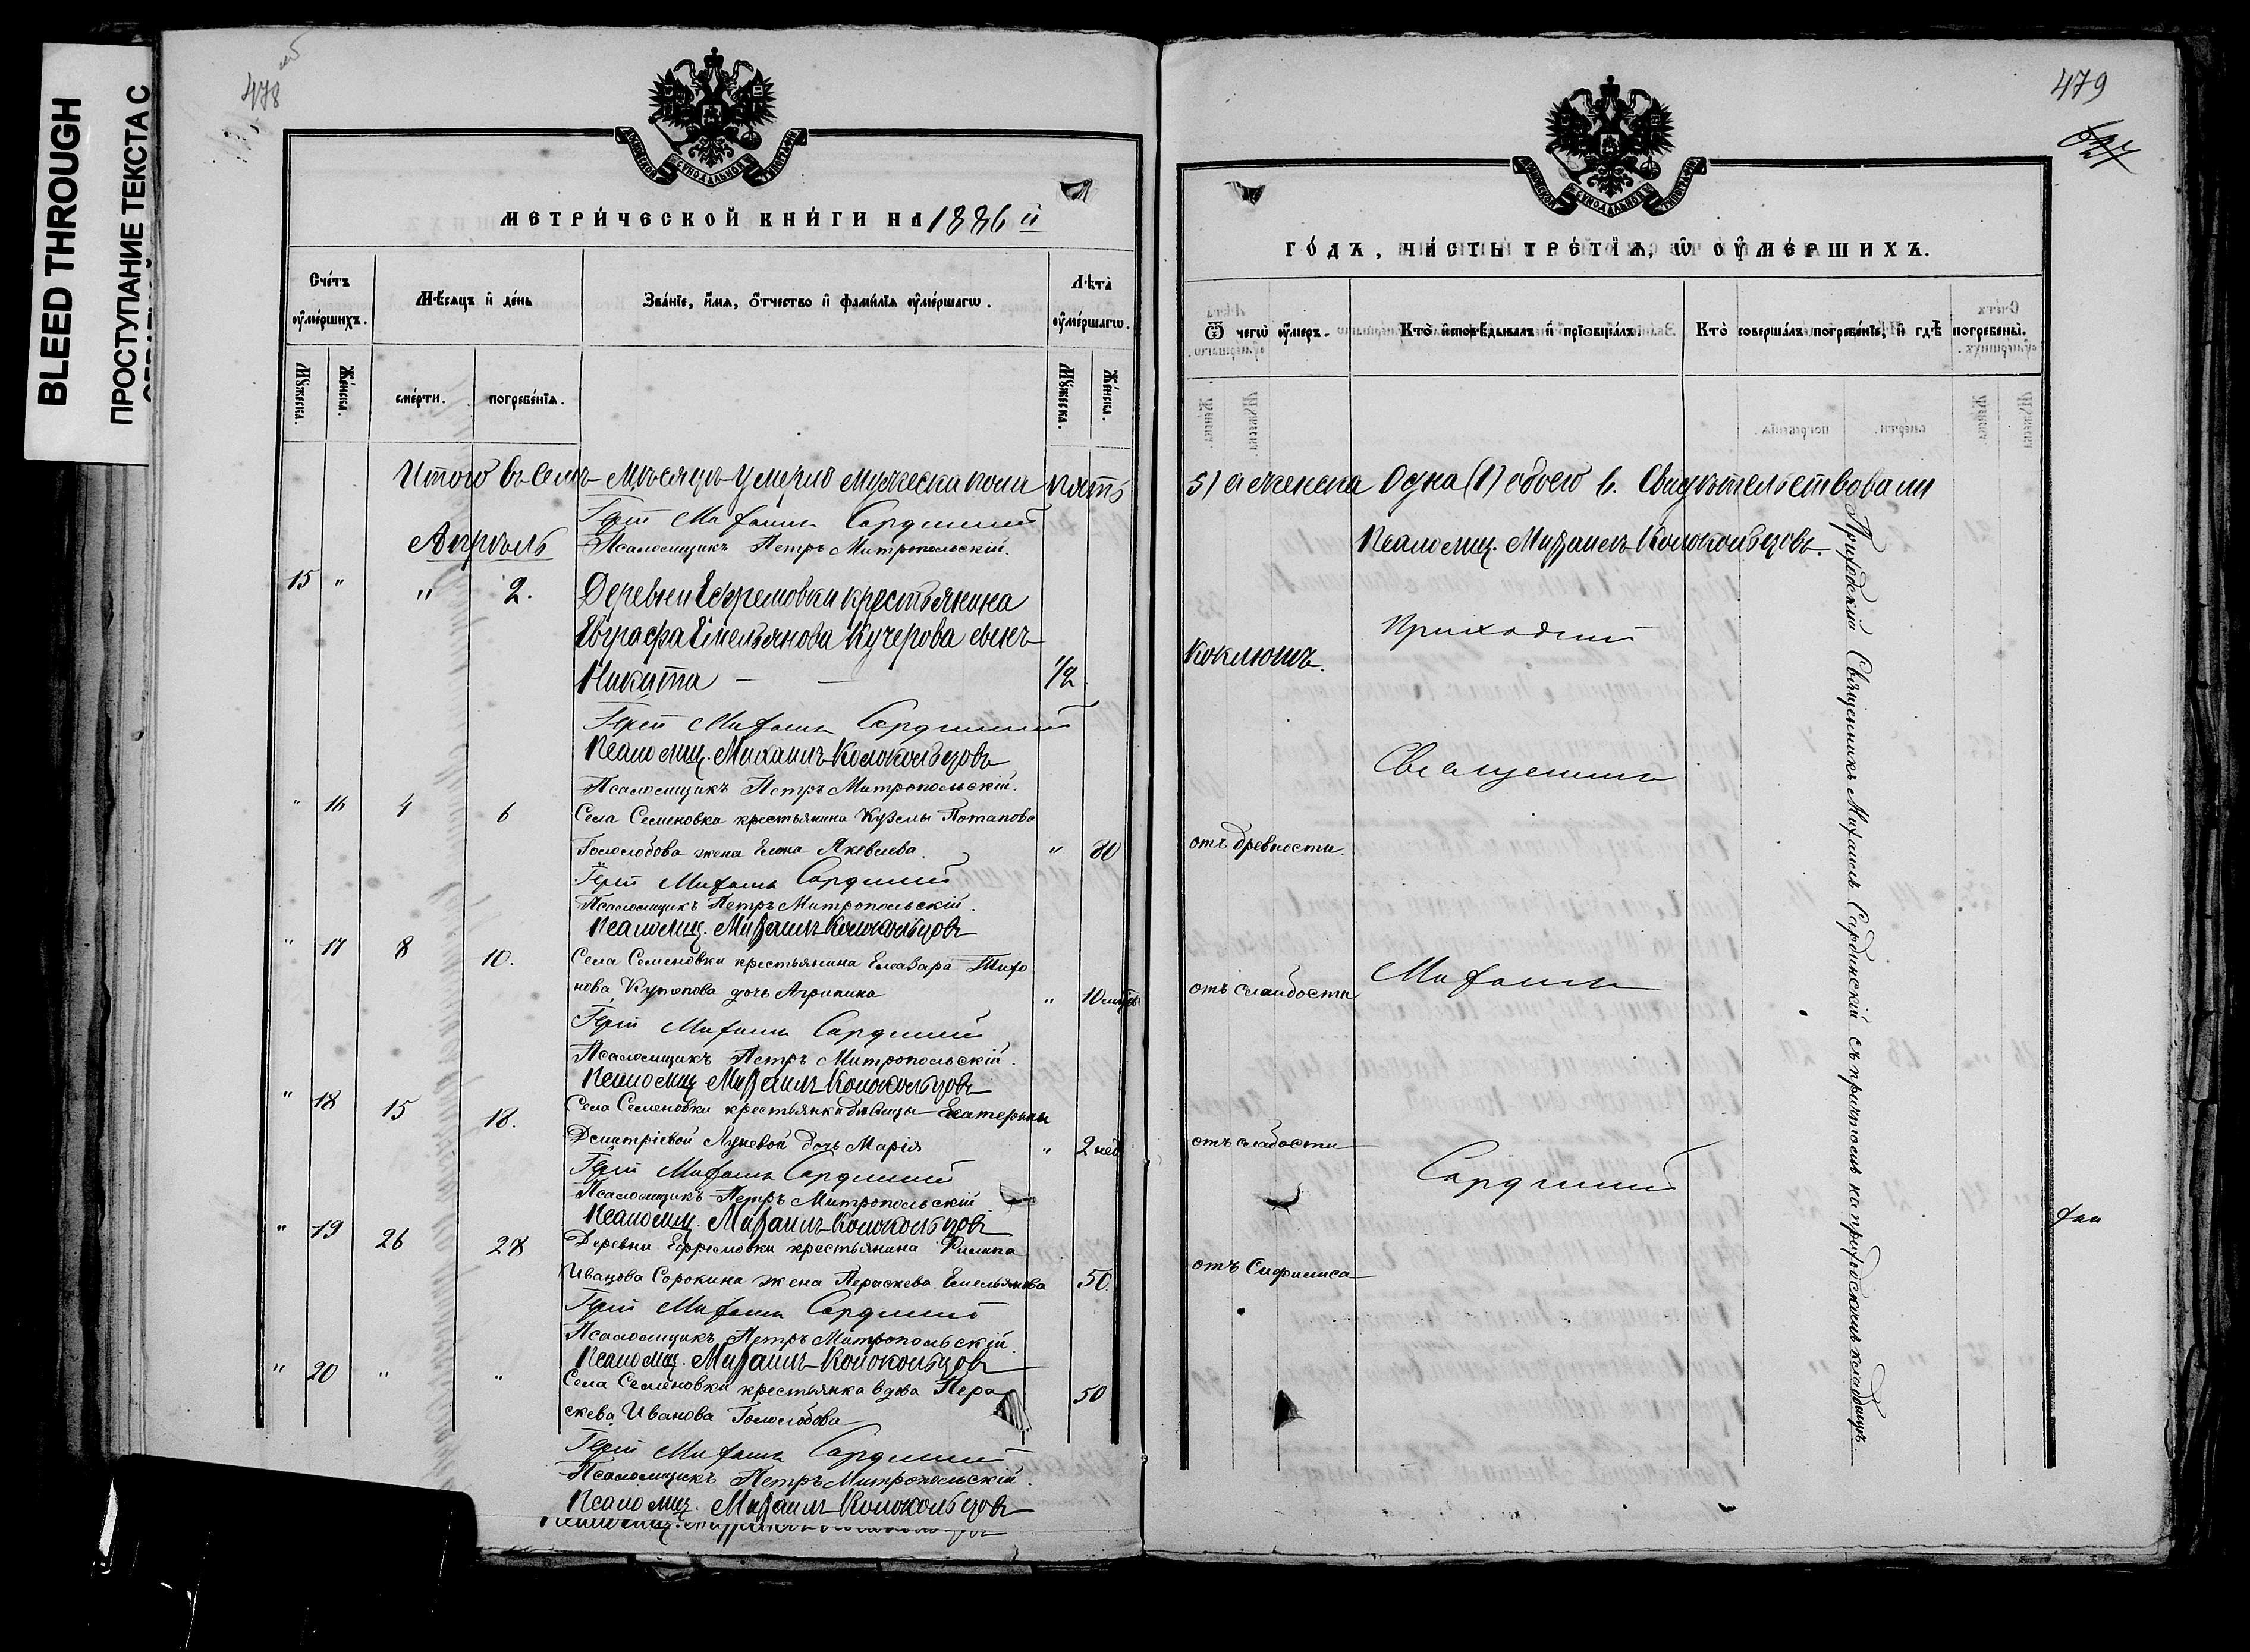 BLEED THROUGH
ПРОСТУПАНИЕ ТЕКСТА С
478 об
МЕТРИЧЕСКОЙ КНИГИ НА 1886 й
Счетъ умершихъ.
Мѣсяцъ и день
Званіе, имя, отчество и фамилія умершаго.
Лѣта умершаго.
Мужеска. Женска.
смерти. погребенія.
Мужеска. Женска.
Итого въ семъ мѣсяцѣ умерло мужеска пола пять
Іерей Михаилъ Сардинскій
Апрѣль
Псаломщикъ Петръ Митропольскій.
15 " " 2. Деревни Ефремовки крестьянина
Евграфа Емельянова Кучерова сынъ
Никита — — 1/2
Іерей Михаилъ Сардинскій
Псаломщ. Михаилъ Колокольцовъ
Псаломщикъ Петръ Митропольскій.
" 16 4 6 Села Семеновки крестьянина Кузьмы Потапова
Гололобова жена Елена Яковлева. " 80
Іерей Михаилъ Сардинскій
Псаломщикъ Петръ Митропольскій.
Псаломщ. Михаилъ Колокольцовъ
" 17 8 10. Села Семеновки крестьянина Елеазара Тихо
нова дочь Агрипина " 10
Іерей Михаилъ Сардинскій
Псаломщикъ Петръ Митропольскій.
Псаломщ Михаилъ Колокольцовъ
" 18 15 18. Села Семеновки крестьянки дѣвицы Екатерины
Дмитріевой дочь Марія " 2 нед
Іерей Михаилъ Сардинскій
Псаломщикъ Петръ Митропольскій
Псаломщ. Михаилъ Колокольцовъ
" 19 26 28 Деревни Ефремовки крестьянина Филипа
Иванова Сорокина жена Параскева Емельянова 50.
Іерей Михаилъ Сардинскій
Псаломщикъ Петръ Митропольскій.
Псаломщ. Михаилъ Колокольцовъ
" 20 " " Села Семеновки крестьянка вдова Пера
скева Иванова Гололобова 50
Іерей Михаилъ Сардинскій
Псаломщикъ Петръ Митропольскій.
Псаломщ. Михаилъ Колокольцовъ
479
627
ГОДЪ, ЧАСТЬ ТРЕТІЯ, Ѡ УМЕРШИХЪ.
Ѿ чегѡ умеръ.
Кто исповѣдывалъ и пріобщалъ.
Кто совершалъ погребеніе, и гдѣ погребены.
5) а женска одна (1) обоего 6. Свидѣтельствовали
Псаломщ. Михаилъ Колокольцовъ.
коклюшъ.
отъ древности.
отъ слабости
отъ слабости
отъ Сифилиса
Приходскій
Священникъ
Михаилъ
Сардинскій
Приходскій Священникъ Михаилъ Сардинскій съ причтомъ на приходскомъ кладбищѣ